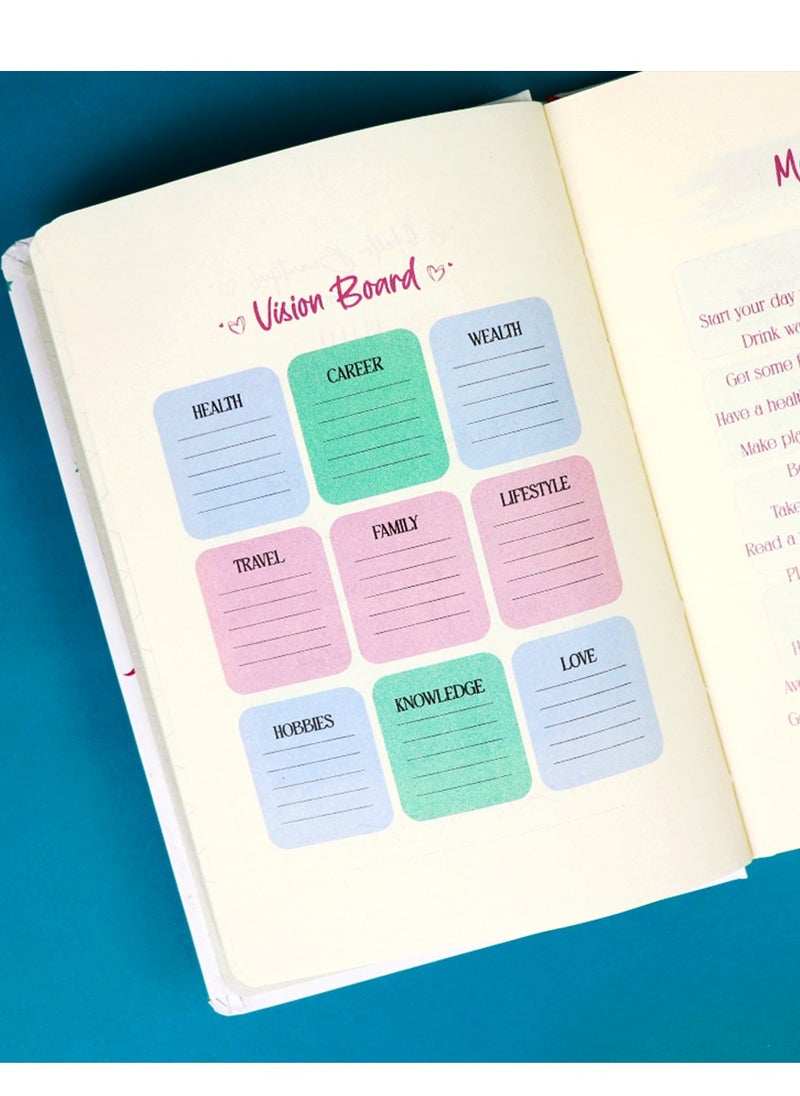 Vision Board
HEALTH
CAREER
WEALTH
TRAVEL
FAMILY
LIFESTYLE
HOBBIES
KNOWLEDGE
LOVE
Start your day
Drink
Get some
Have a
Make
Take
Read a